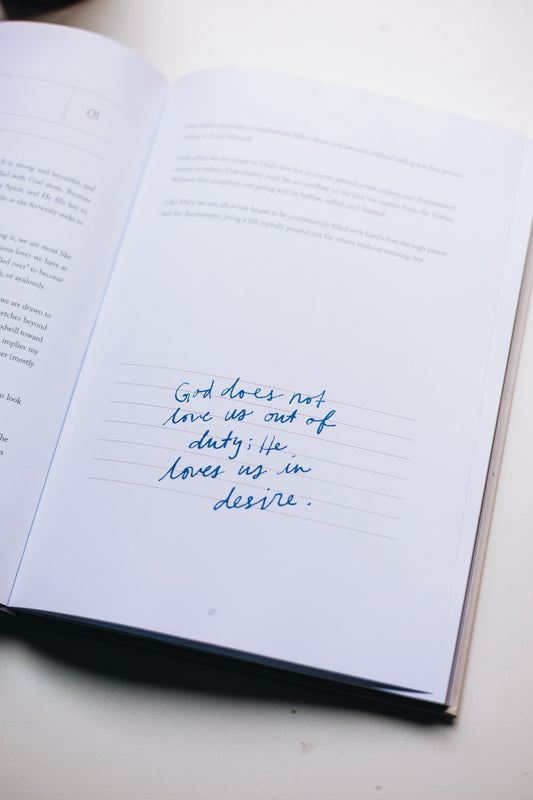 01
It is strong and beautiful, and
filled with God alone. Because
Spirit, and He fills her so
life as she fervently seeks to
ng it, we are most like
cious loves we have as
filled over" to become
y, or zealously.
we are drawn to
retches beyond
odwill toward
implies my
er (mostly
o look
he
s
others to Love Himself.
Only when we are secure in God's love for us can we extend a true, ardent, and disinterested
charity to others. Our charity must be an overflow of the love we receive from the Father.
Without this reception, our giving will be hollow, selfish, and limited.
Like Mary, we can allow our hearts to be continuously filled with God's love through prayer
and the Sacraments, living a life joyfully poured out for others without running dry.
God does not
love us out of
duty; He
loves us in
desire.
27